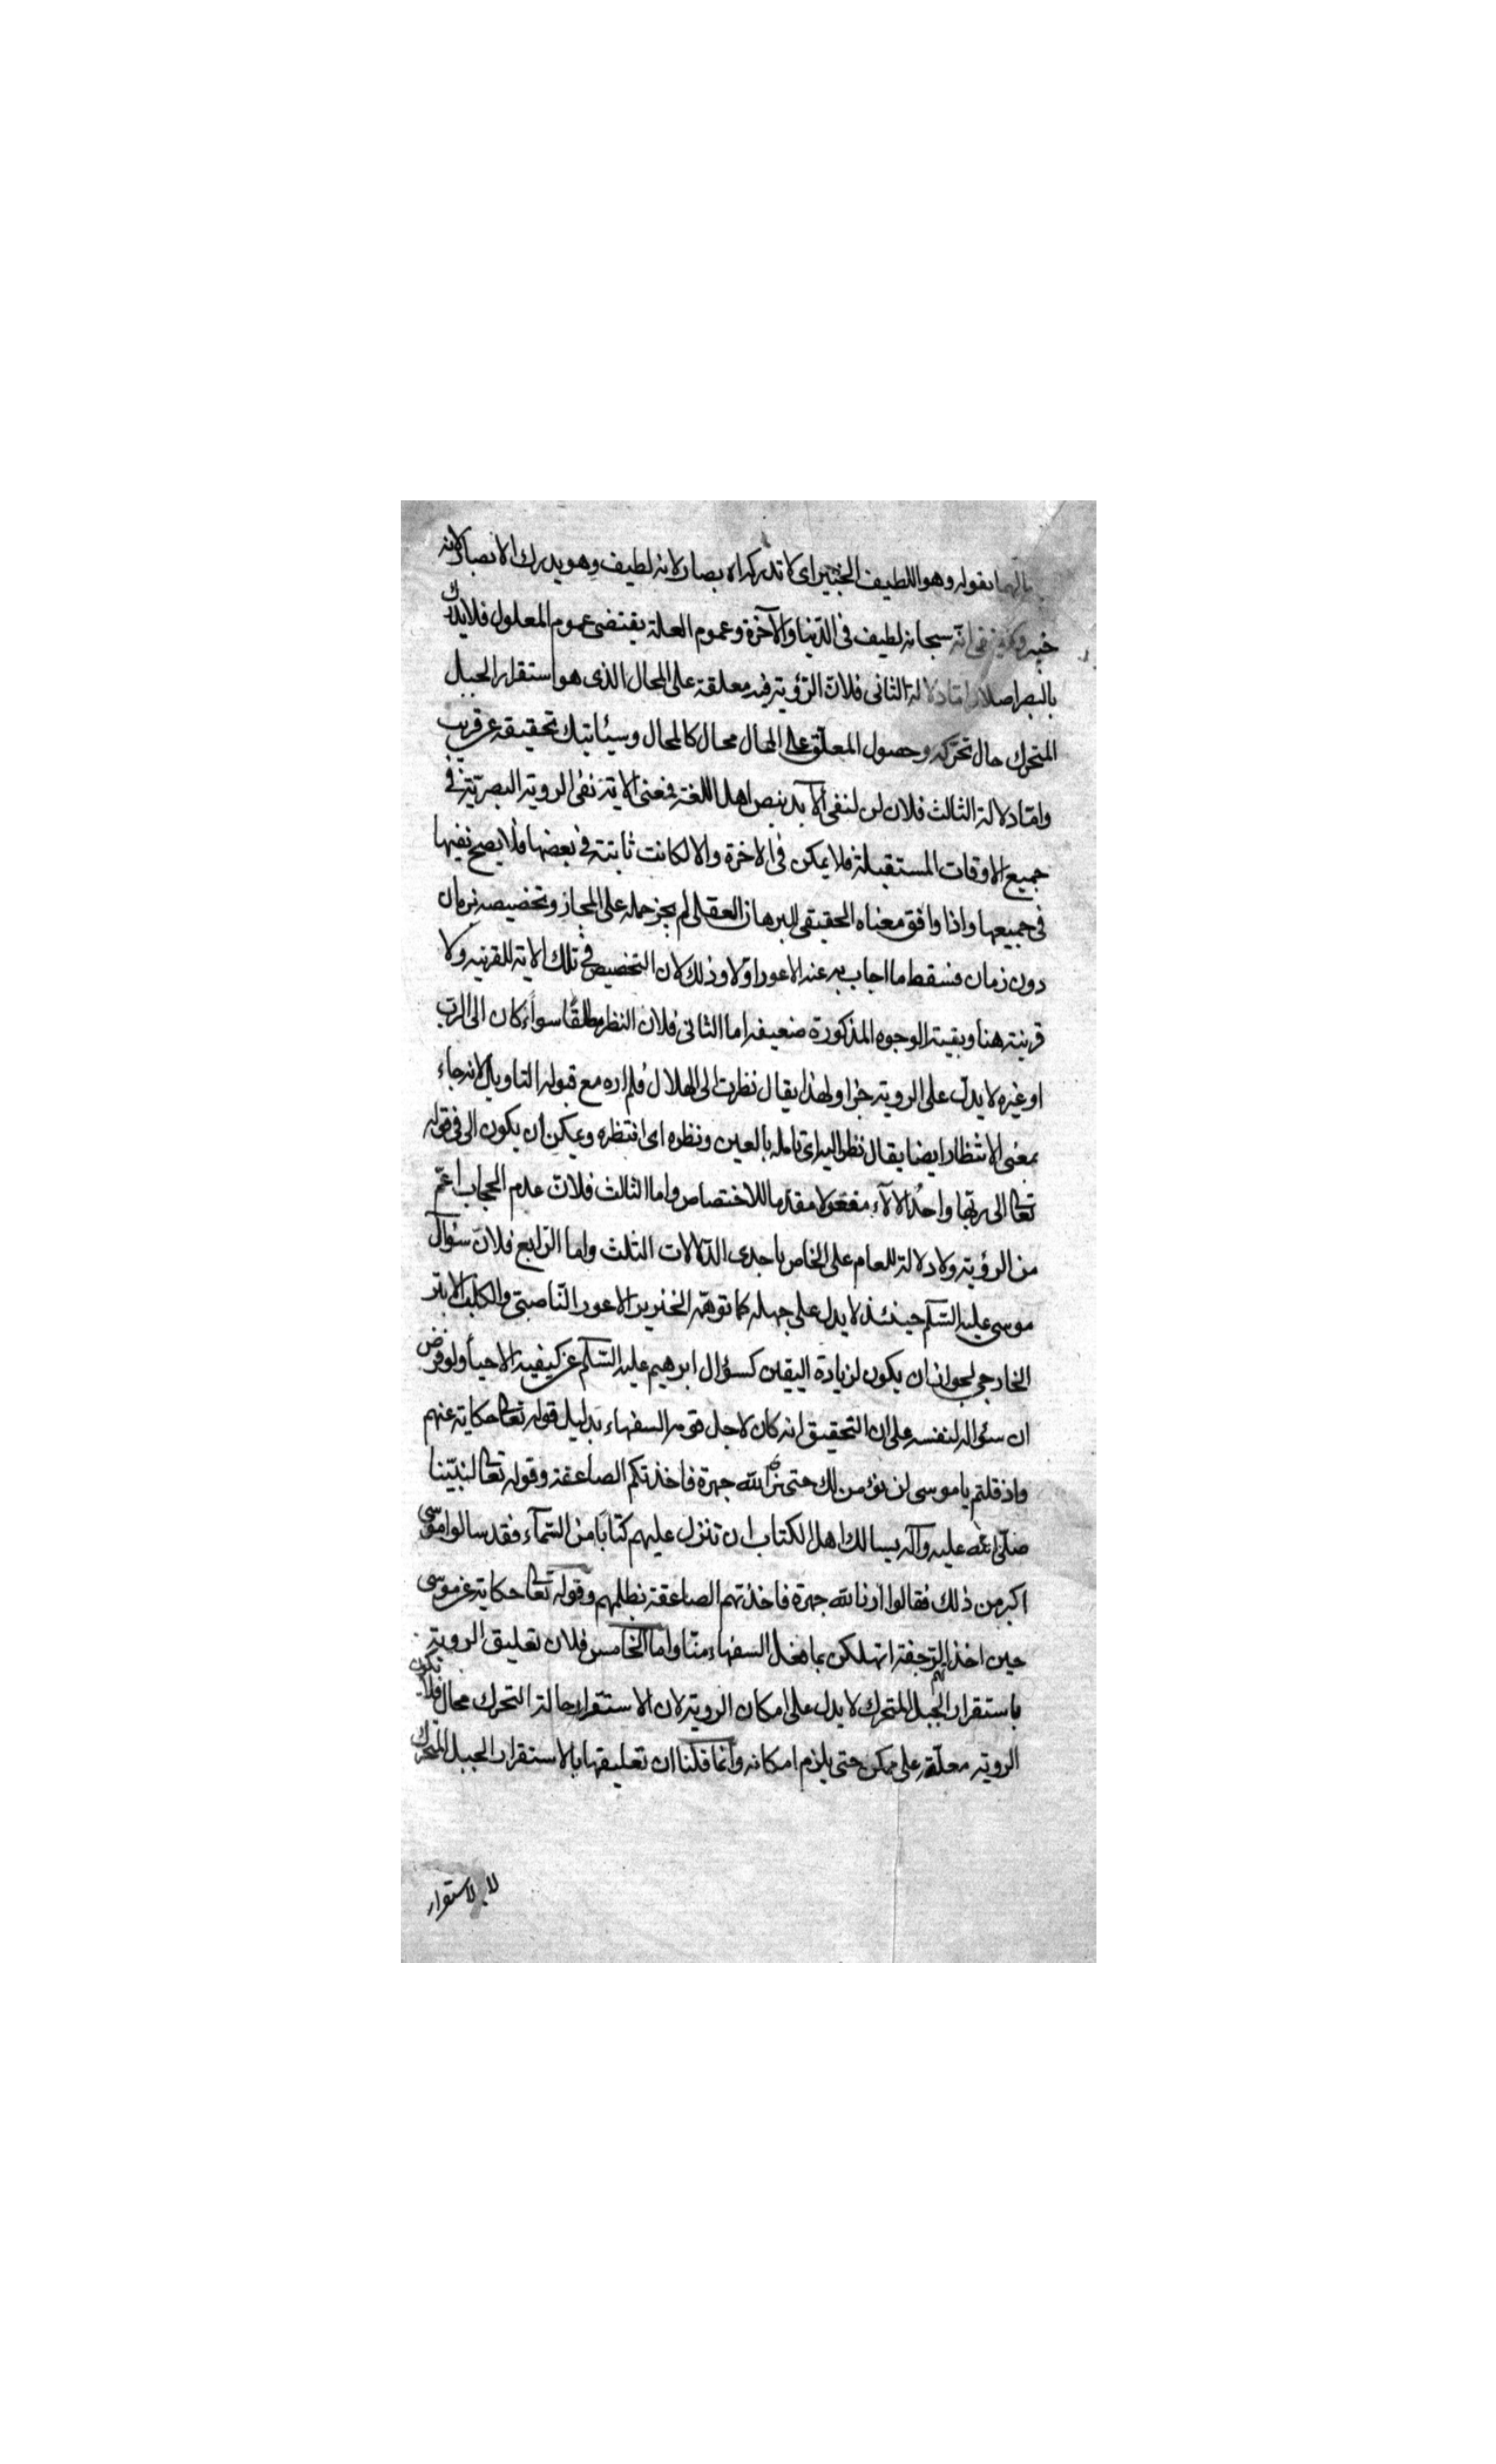 بقوله وهو اللطيف الخبير اى لا تدركه الابصار لانه لطيف وهو يدرك الابصار لانه
خبير انه سبحانه لطيف فى الدّنيا والآخرة وعموم العلة يقتضى عموم المعلول فلا يدرك
بالبصر اصلا وامّا دلالة الثانى فلانّ الرّؤية فيه معلقة على المحال الذى هو استقرار الجبل
المتحرك حال تحرّكه وحصول المعلّق على المحال محال كالمحال وسيئاتيك تحقيقه عن قريب
وامّا دلالة الثالث فلان لن لنفى الأبد بنص اهل اللغة فمعنى الاية نفى الروية البصريّة فى
جميع الاوقات المستقبلة فلا يمكن فى الاخرة والا لكانت ثابتة فى بعضها فلا يصح نفيها
فى جميعها واذا وافق معناه الحقيقى للبرهان العقلى لم يجز حمله على المجاز وتخصيصه بزمان
دون زمان فسقط ما اجاب به عنه الاعور اوّلا وذلك لان التخصيص فى تلك الاية للقرينة ولا
قرينة هنا وبقية الوجوه المذكورة ضعيفة اما الثانى فلان النظر مطلقًا سواء كان الى الرب
او غيره لا يدلّ على الروية جزما ولهذا يقال نظرت الى الهلال فلم اره مع قبوله التاويل لانه جاء
بمعنى الانتظار ايضا يقال نظر اليه اى تامله بالعين ونظره اى انتظره ويمكن أن يكون الى فى قوله
تعالى الى ربّها واحدُ الآلآء مفعولا مقدّما للاختصاص واما الثالث فلانّ عدم الحجاب اعمّ
من الرؤية ولا دلالة للعام على الخاص باحدى الدّلالات الثلث واما الرّابع فلانّ سؤال
موسى عليه السّلم حينئذ لا يدل على جهله كما توهّمه الخنزير الاعور النّاصبىّ والكلب الابتر
الخارجى لجواز ان يكون لزيادة اليقين كسؤال ابرهيم عليه السّلم عن كيفية الاحيآء ولو فرض
ان سئواله لنفسه على ان التحقيق انه كان لاجل قومه السفهاء بدليل قوله تعالى حكاية عنهم
واذ قلتم يا موسى لن نؤمن لك حتى نرى الله جهرة فاخذتكم الصاعقة وقوله تعالى لنبيّنا
صلّى الله عليه وآله يسالك اهل الكتاب ان تنزل عليهم كتابًا من السّمآء فقد سالوا موسى
اكبر من ذلك فقالوا ارنا الله جهرة فاخذتهم الصاعقة بظلمهم وقوله تعالى حكاية عن موسى
حين اخذ الرّجفة اتهلكن بما فعل السفهاء منّا واما الخامس فلان تعليق الروية
باستقرار الجبل المتحرك لا يدل على امكان الروية لان الاستقرار حالة التحرك محال فلا تكون
الروية معلّقه على ممكن حتى يلزم امكانه وانما قلنا ان تعليقها بالاستقرار الجبل المتحرك
لا بلاستقرار